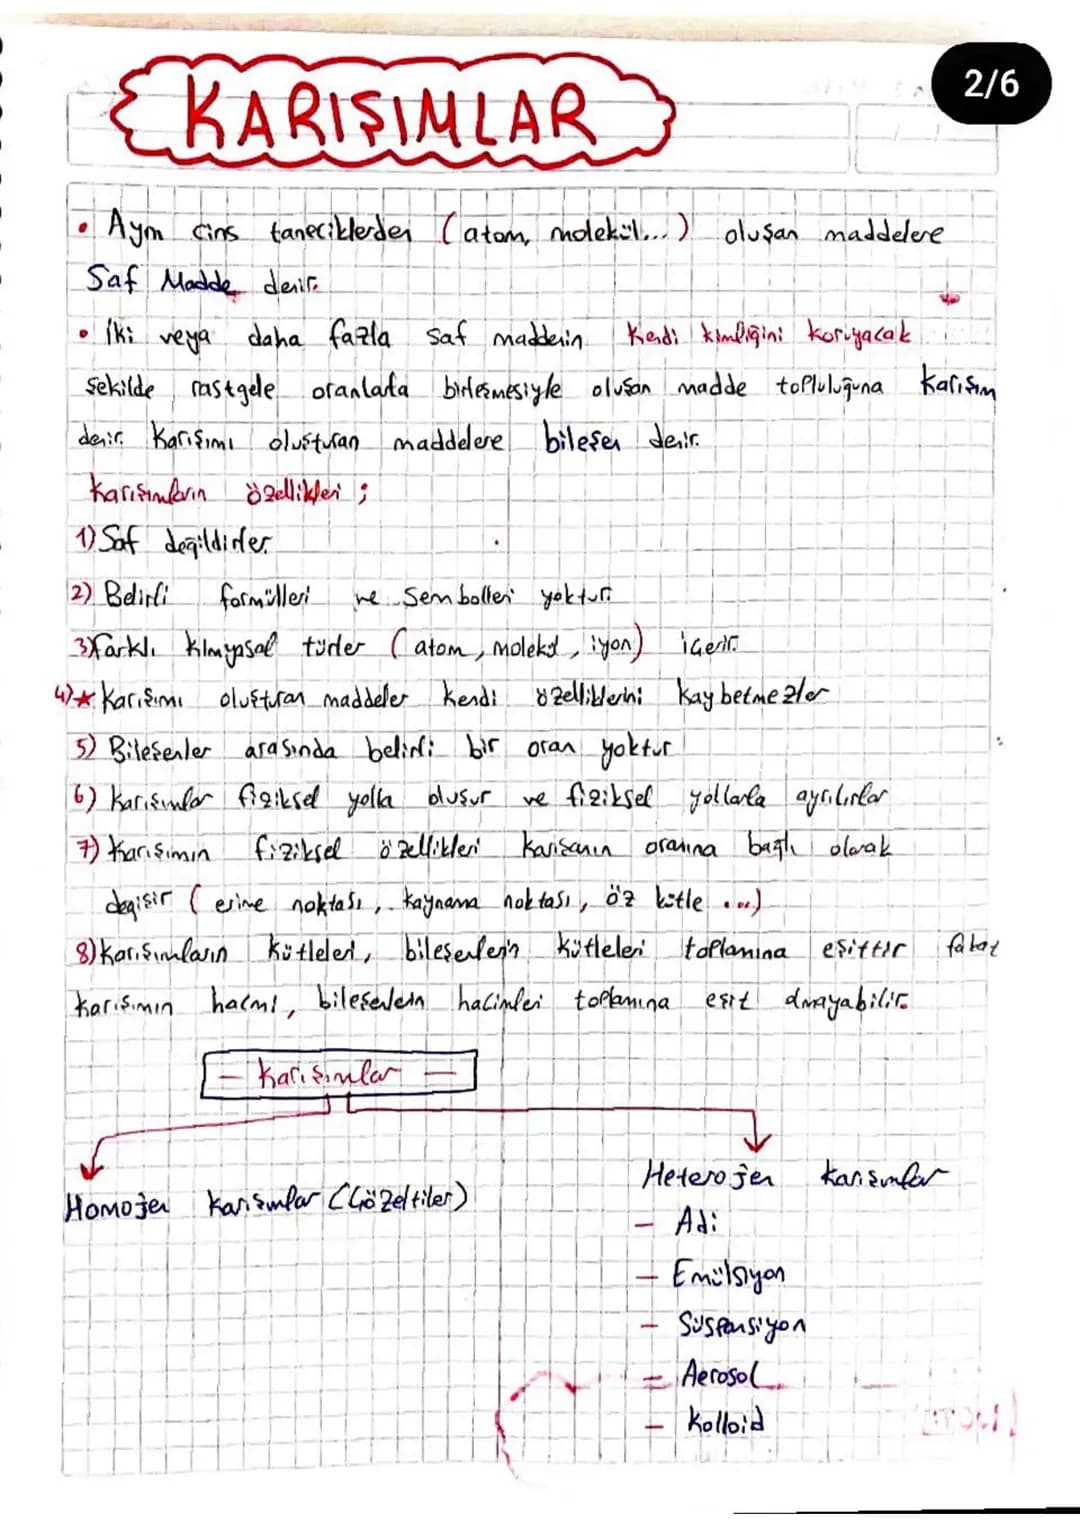 2/6
KARIŞIMLAR
• Aynı cins taneciklerden (atom, molekül...) oluşan maddelere
Saf Madde denir.
• İki veya daha fazla saf maddenin kendi kimliğini koruyacak
şekilde rastgele oranlarda birleşmesiyle oluşan madde topluluğuna karışım
denir. Karışımı oluşturan maddelere bileşen denir.
Karışımların özellikleri ;
1) Saf değildirler.
2) Belirli formülleri ve sembolleri yoktur.
3) Farklı kimyasal türler (atom, molekül, iyon) içerir.
4)★ Karışımı oluşturan maddeler kendi özelliklerini kaybetmezler
5) Bileşenler arasında belirli bir oran yoktur
6) Karışımlar fiziksel yolla oluşur ve fiziksel yollarla ayrılırlar
7) Karışımın fiziksel özellikleri karışanın oranına bağlı olarak
değişir (erime noktası, kaynama noktası, öz kütle ...)
8) Karışımların kütleleri, bileşenlerin kütleleri toplamına eşittir fakat
karışımın hacmi, bileşenlerin hacimleri toplamına eşit olmayabilir.
— Karışımlar —
Homojen karışımlar (Çözeltiler)
Heterojen karışımlar
— Adi
— Emülsiyon
— Süspansiyon
— Aerosol
— Kolloid